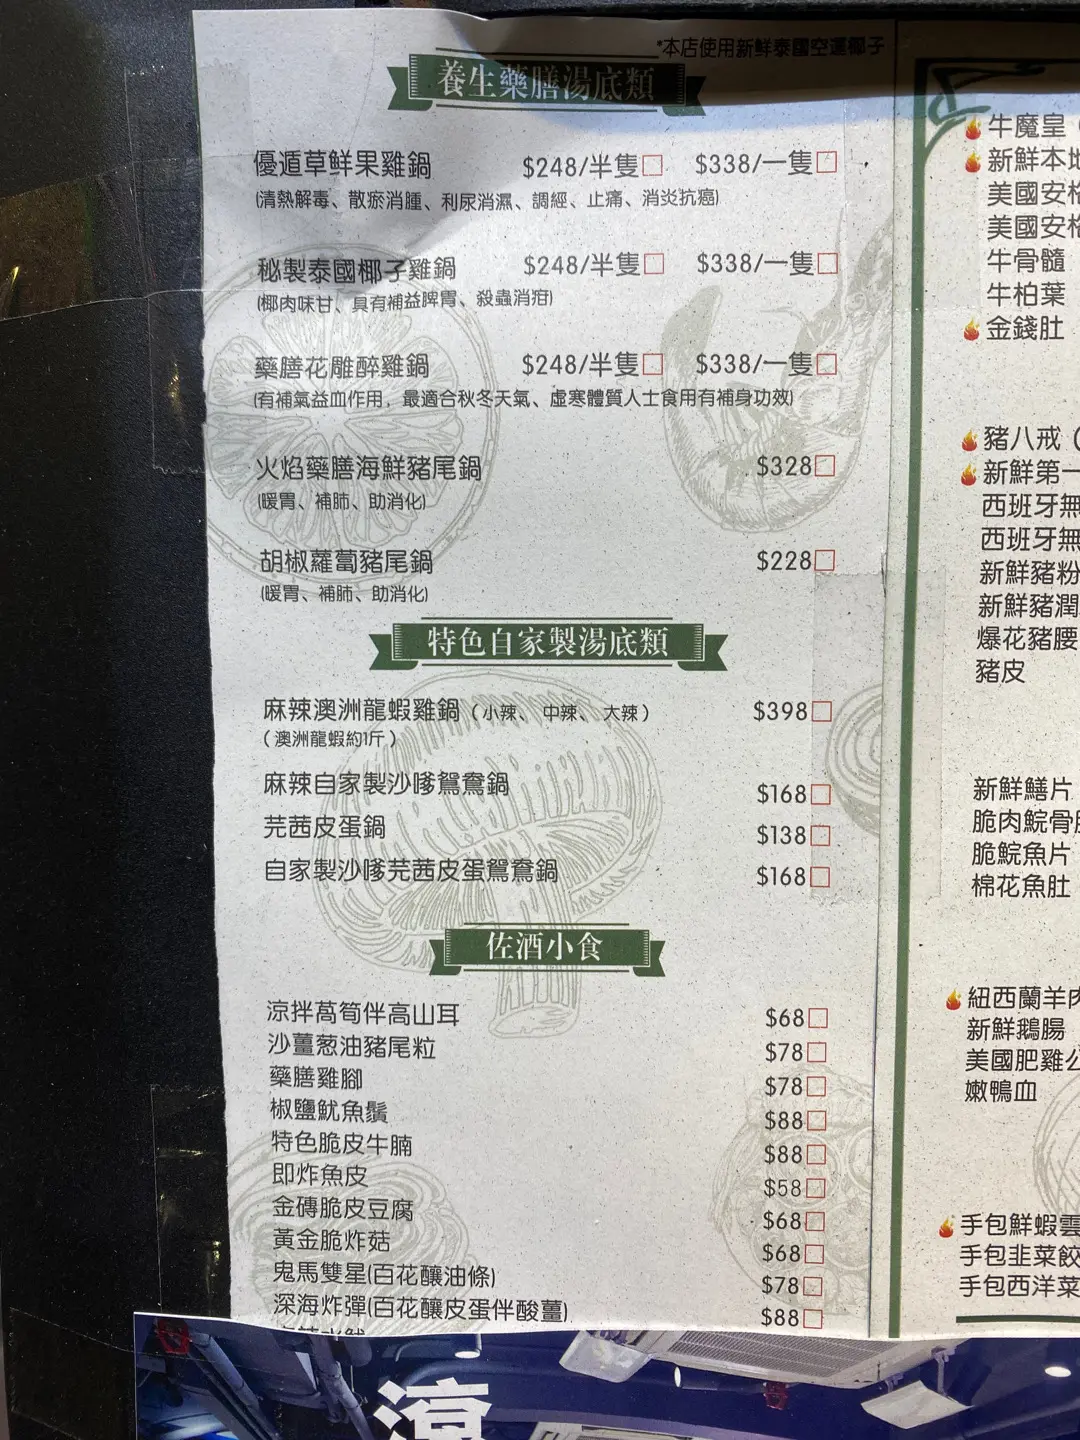 *本店使用新鮮泰國空運椰子
養生藥膳湯底類
優遁草鮮果雞鍋 $248/半隻 $338/一隻
(清熱解毒、散瘀消腫、利尿消濕、調經、止痛、消炎抗癌)
秘製泰國椰子雞鍋 $248/半隻 $338/一隻
(椰肉味甘、具有補益脾胃、殺蟲消疳)
藥膳花雕醉雞鍋 $248/半隻 $338/一隻
(有補氣益血作用，最適合秋冬天氣、虛寒體質人士食用有補身功效)
火焰藥膳海鮮豬尾鍋 $328
(暖胃、補肺、助消化)
胡椒蘿蔔豬尾鍋 $228
(暖胃、補肺、助消化)
特色自家製湯底類
麻辣澳洲龍蝦雞鍋（小辣、中辣、大辣） $398
（澳洲龍蝦約1斤）
麻辣自家製沙嗲鴛鴦鍋 $168
芫茜皮蛋鍋 $138
自家製沙嗲芫茜皮蛋鴛鴦鍋 $168
佐酒小食
涼拌萵筍伴高山耳 $68
沙薑葱油豬尾粒 $78
藥膳雞腳 $78
椒鹽魷魚鬚 $88
特色脆皮牛腩 $88
即炸魚皮 $58
金磚脆皮豆腐 $68
黃金脆炸菇 $68
鬼馬雙星(百花釀油條) $78
深海炸彈(百花釀皮蛋伴酸薑) $88
牛魔皇（
新鮮本地
美國安格
美國安格
牛骨髓
牛柏葉
金錢肚
豬八戒（
新鮮第一
西班牙無
西班牙無
新鮮豬粉
新鮮豬潤
爆花豬腰
豬皮
新鮮鱔片
脆肉鯇骨
脆鯇魚片
棉花魚肚
紐西蘭羊肉
新鮮鵝腸
美國肥雞公
嫩鴨血
手包鮮蝦雲
手包韭菜餃
手包西洋菜
涼